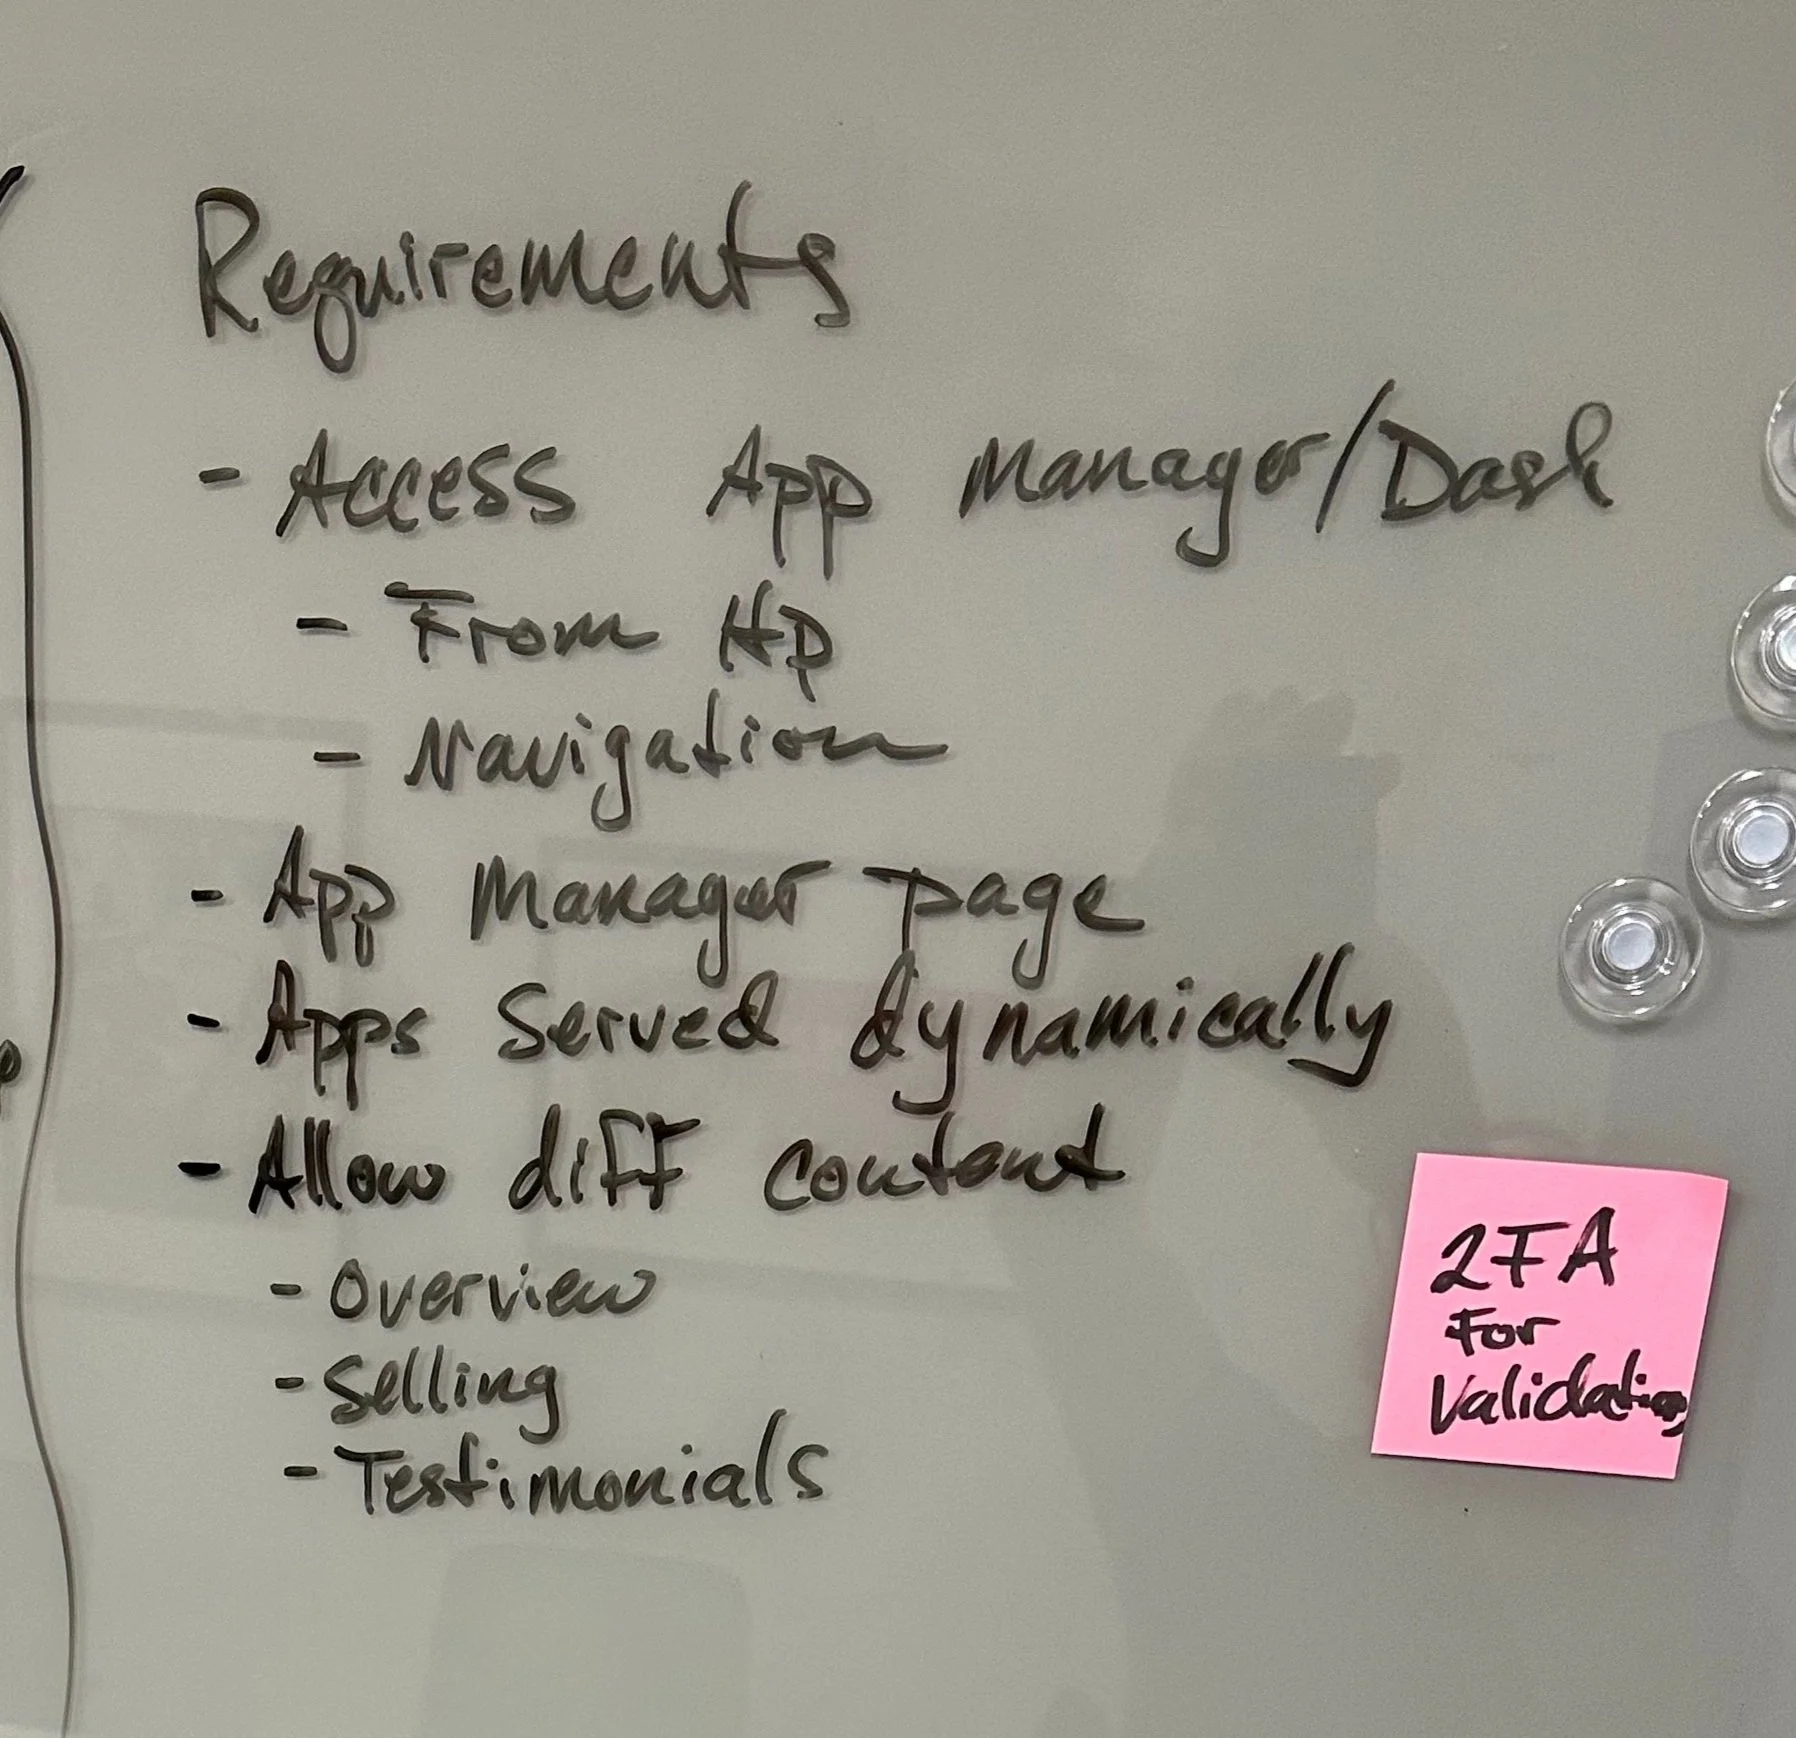 Requirements
- Access App Manager/Dash
- From HP
- Navigation
- App Manager page
- Apps Served dynamically
- Allow diff content
- Overview
- Selling
- Testimonials
2FA
For
Validation